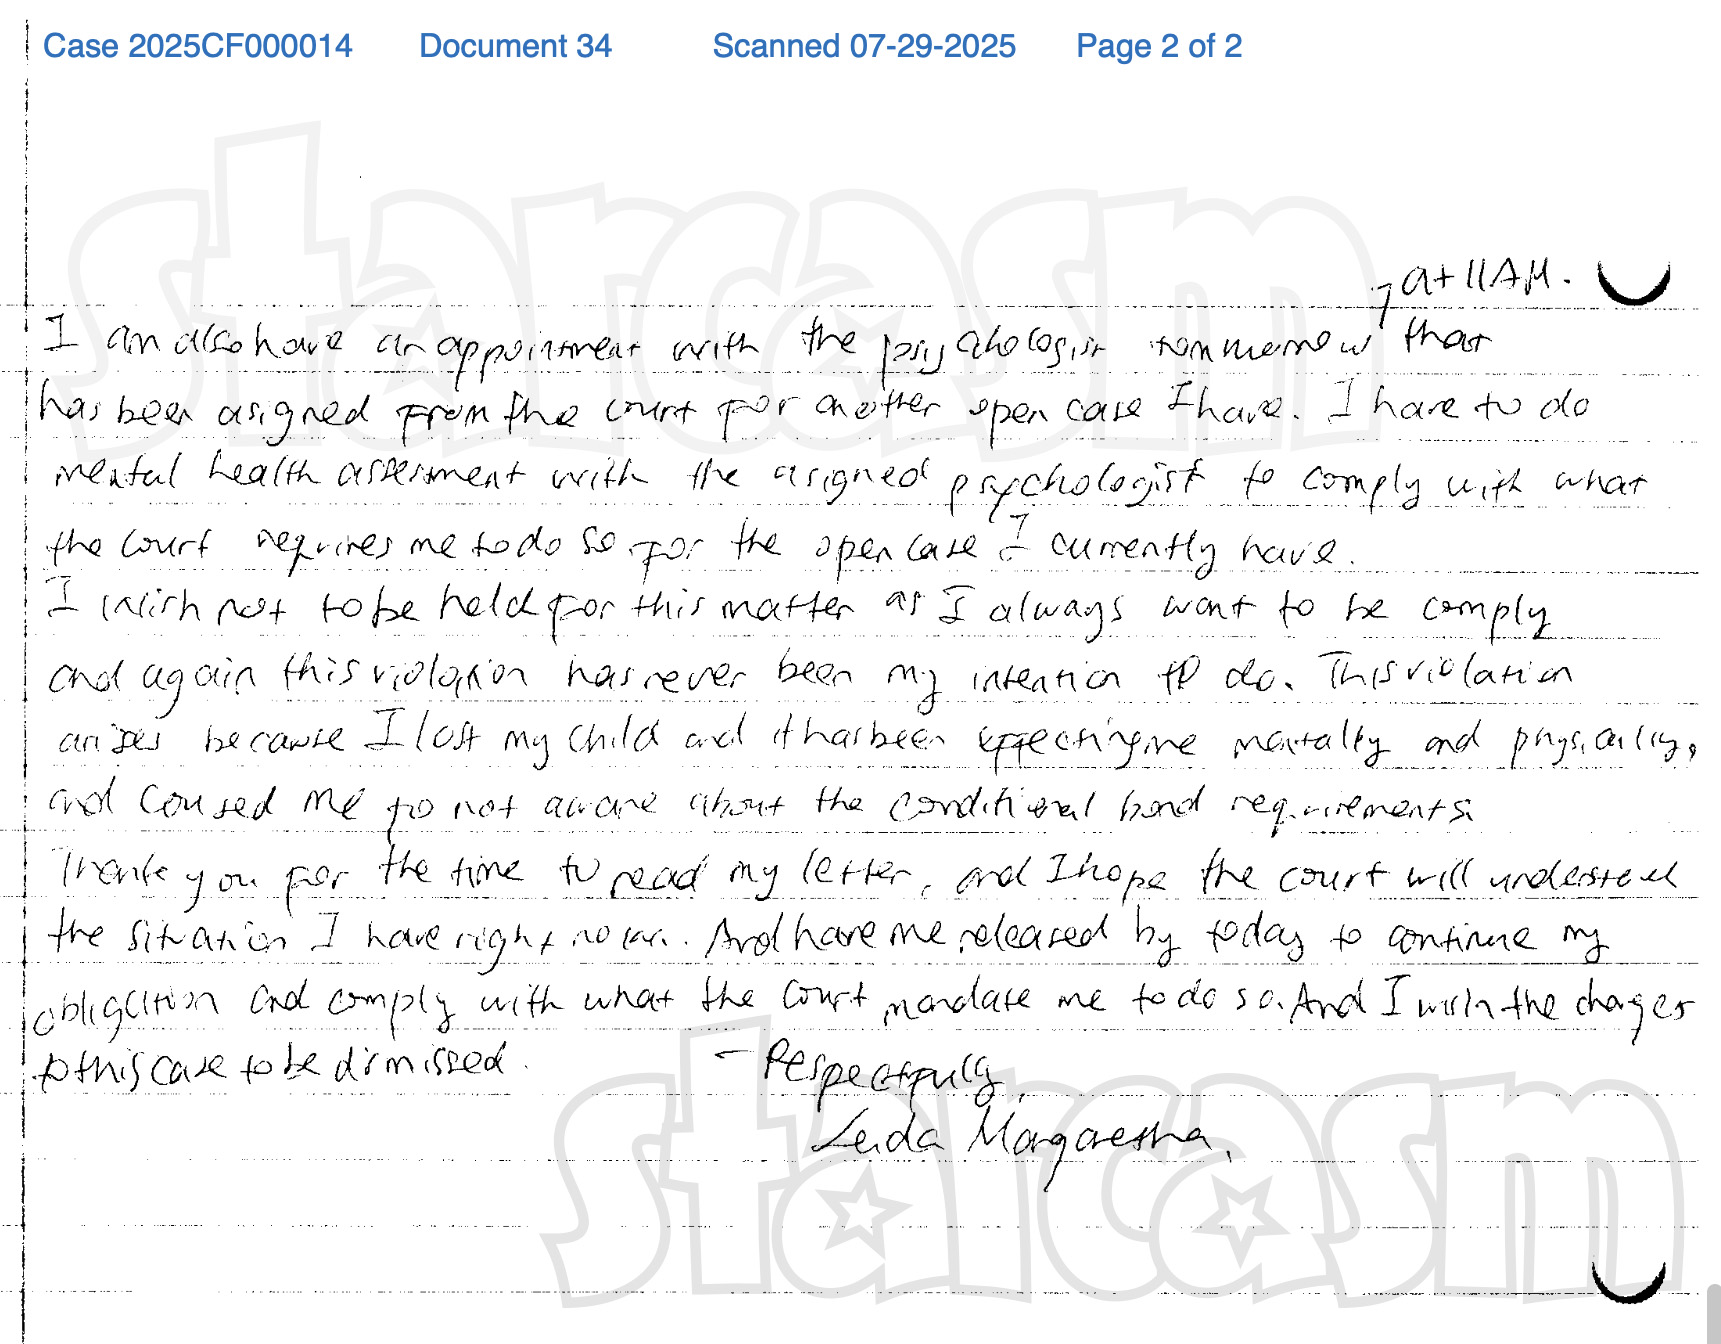 Case 2025CF000014 Document 34 Scanned 07-29-2025 Page 2 of 2
starcasm
at 11AM.
I am also have an appointment with the psychologist tommorrow that
has been asigned from the court for another open case I have. I have to do
mental health assesment with the asigned psychologist to comply with what
the court requires me to do so for the open case I currently have.
I wish not to be held for this matter as I always want to be comply
and again this violation has never been my intention to do. This violation
arises because I lost my child and it has been effecting me mentally and physically,
and coused me to not aware about the conditional bond requirements.
Thank you for the time to read my letter, and I hope the court will understand
the situation I have right now. And have me released by today to continue my
obligation and comply with what the court mandate me to do so. And I wish the charges
to this case to be dismissed.
- Respectfully,
Leida Margaretha.
starcasm